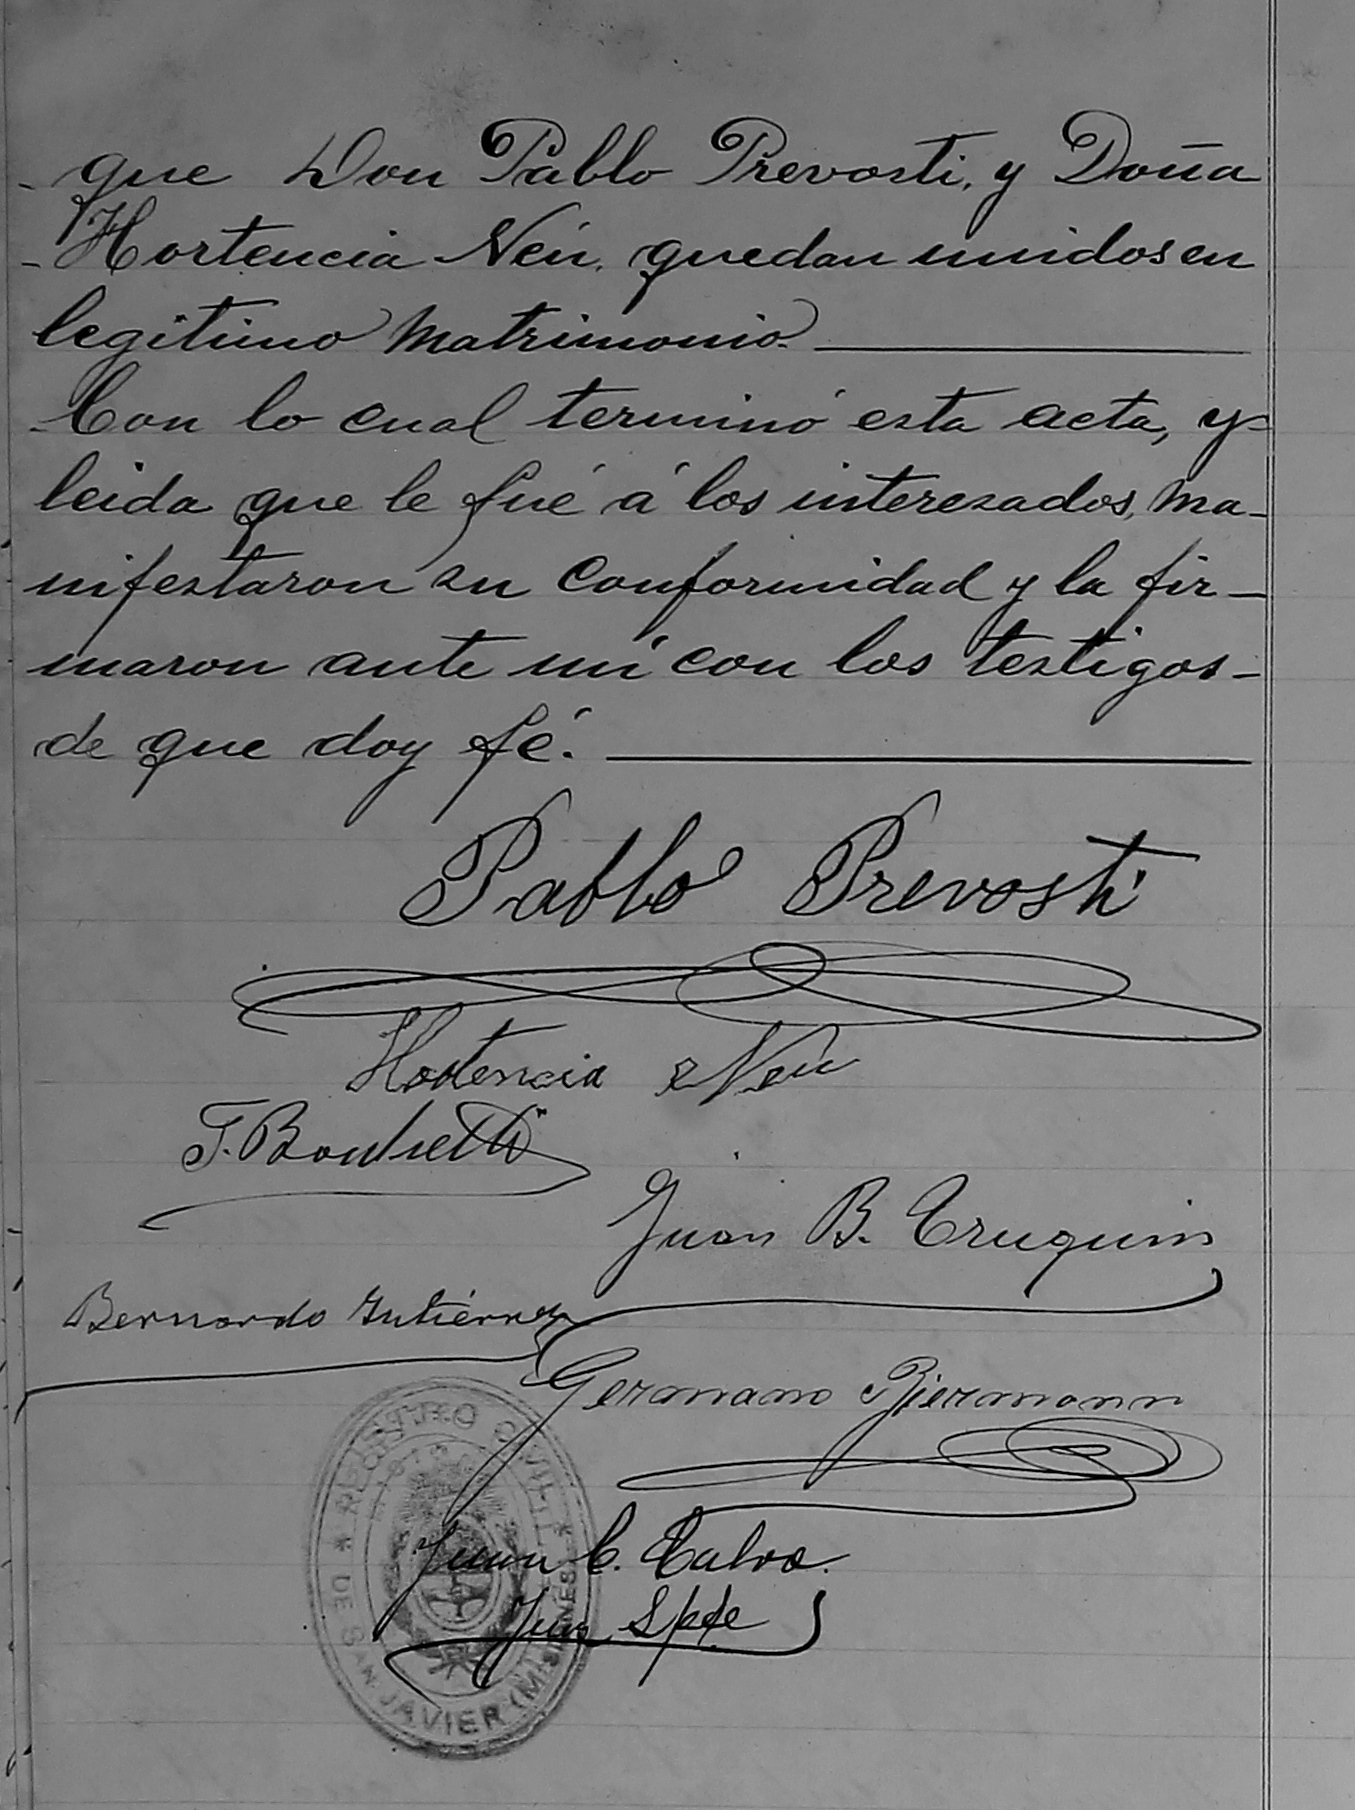 que Don Pablo Prevosti, y Doña
Hortencia Neu. quedan unidos en
legitimo Matrimonio.
Con lo cual terminó esta acta, y
leida que le fué á los interesados, ma-
nifestaron su conformidad y la fir-
maron ante mí con los testigos
de que doy fé.
Pablo Prevosti
Hortencia Neu
Juan B. Truquin
Bernardo Gutiérrez
Germano Biermann
Juan C. Calvo.
Juez Spte
REGISTRO CIVIL
DE SAN JAVIER (MISIONES)